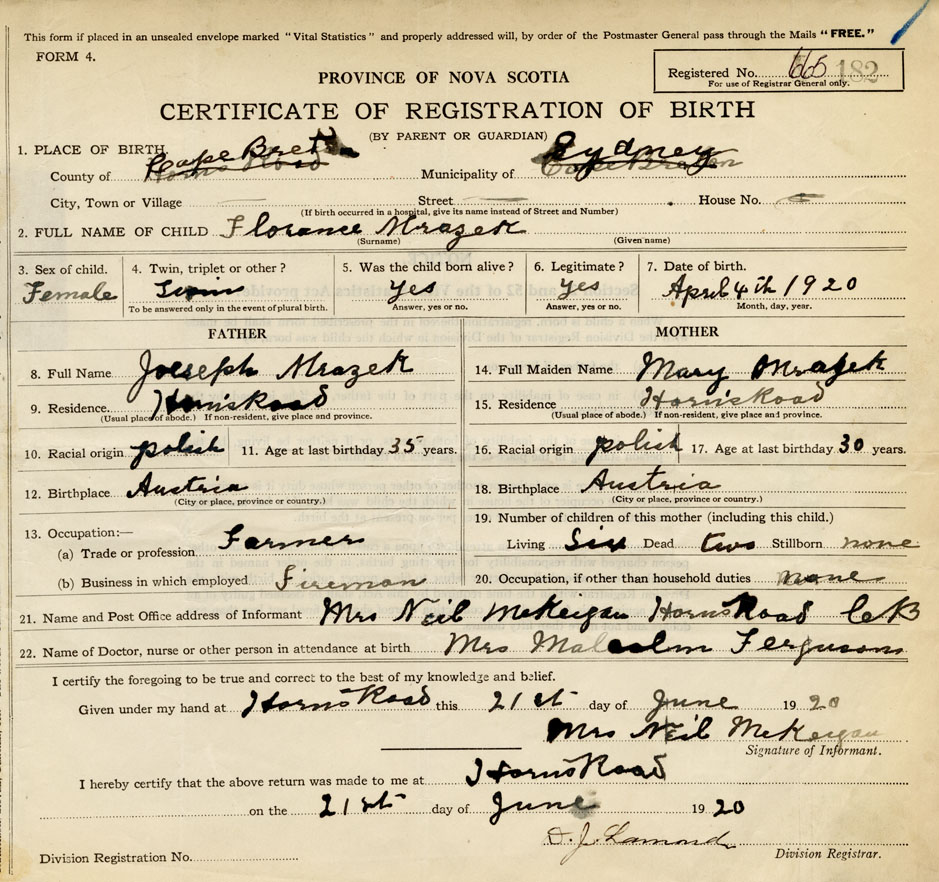 This form if placed in an unsealed envelope marked "Vital Statistics" and properly addressed will, by order of the Postmaster General pass through the Mails "FREE."
FORM 4.
PROVINCE OF NOVA SCOTIA
Registered No. 665 182
For use of Registrar General only.
CERTIFICATE OF REGISTRATION OF BIRTH
(BY PARENT OR GUARDIAN)
1. PLACE OF BIRTH.
County of Cape Breton Municipality of Sydney Cape Breton
City, Town or Village Street House No.
(If birth occurred in a hospital, give its name instead of Street and Number)
2. FULL NAME OF CHILD Florance Mrazek
(Surname) (Given name)
3. Sex of child. 4. Twin, triplet or other? 5. Was the child born alive? 6. Legitimate? 7. Date of birth.
Female Twin Yes Yes April 4th 1920
To be answered only in the event of plural birth. Answer, yes or no. Answer, yes or no. Month, day, year.
FATHER MOTHER
8. Full Name Joeseph Mrazek 14. Full Maiden Name Mary Mrazek
9. Residence Horns Road 15. Residence Horns Road
(Usual place of abode.) If non-resident, give place and province. (Usual place of abode.) If non-resident, give place and province.
10. Racial origin polish 11. Age at last birthday 35 years. 16. Racial origin polish 17. Age at last birthday 30 years.
12. Birthplace Austria 18. Birthplace Austria
(City or place, province or country.) (City or place, province or country.)
13. Occupation:— 19. Number of children of this mother (including this child.)
(a) Trade or profession Farmer Living Six Dead two Stillborn none
(b) Business in which employed Fireman 20. Occupation, if other than household duties none
21. Name and Post Office address of Informant Mrs Neil McKeigan Horns Road C B
22. Name of Doctor, nurse or other person in attendance at birth Mrs Malcolm Ferguson
I certify the foregoing to be true and correct to the best of my knowledge and belief.
Given under my hand at Horns Road this 21st day of June 1920
Mrs Neil McKeigan
Signature of Informant.
I hereby certify that the above return was made to me at Horns Road
on the 21st day of June 1920
D. J. Lamond
Division Registration No. Division Registrar.